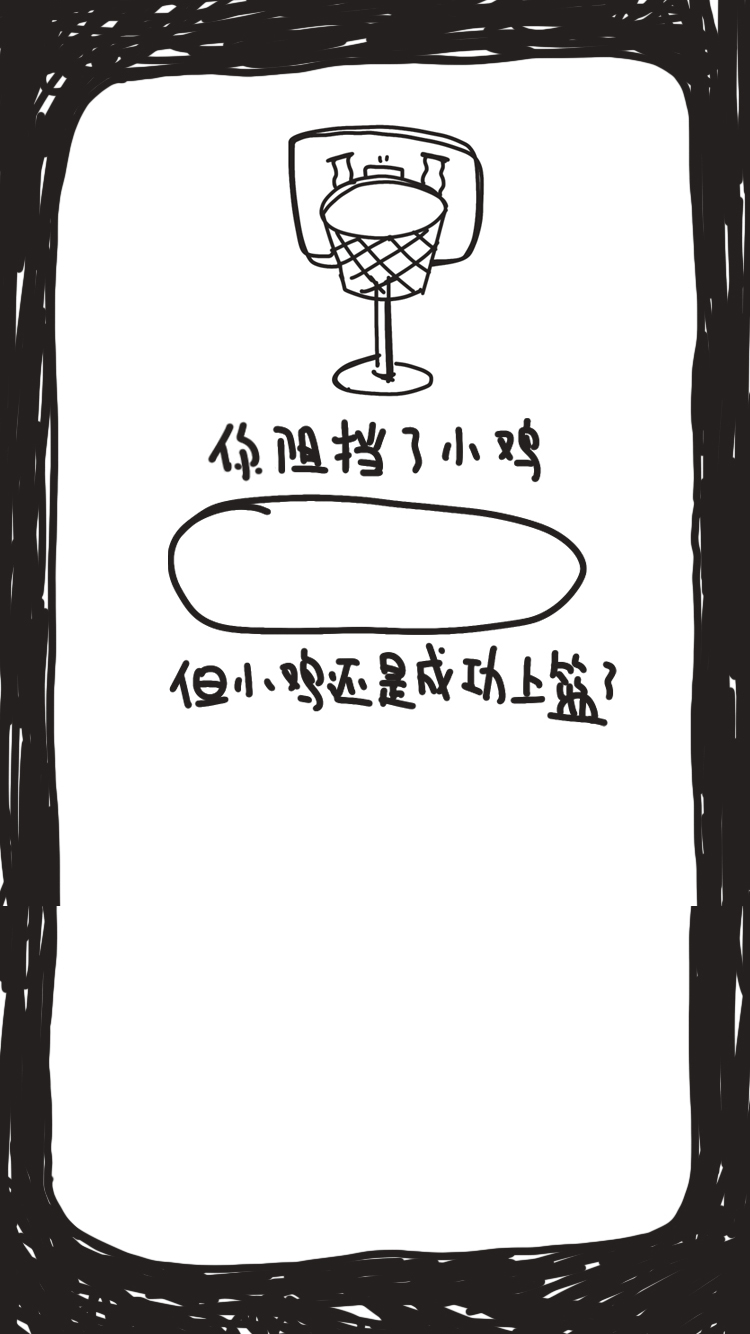 你阻挡了小鸡
但小鸡还是成功上篮了